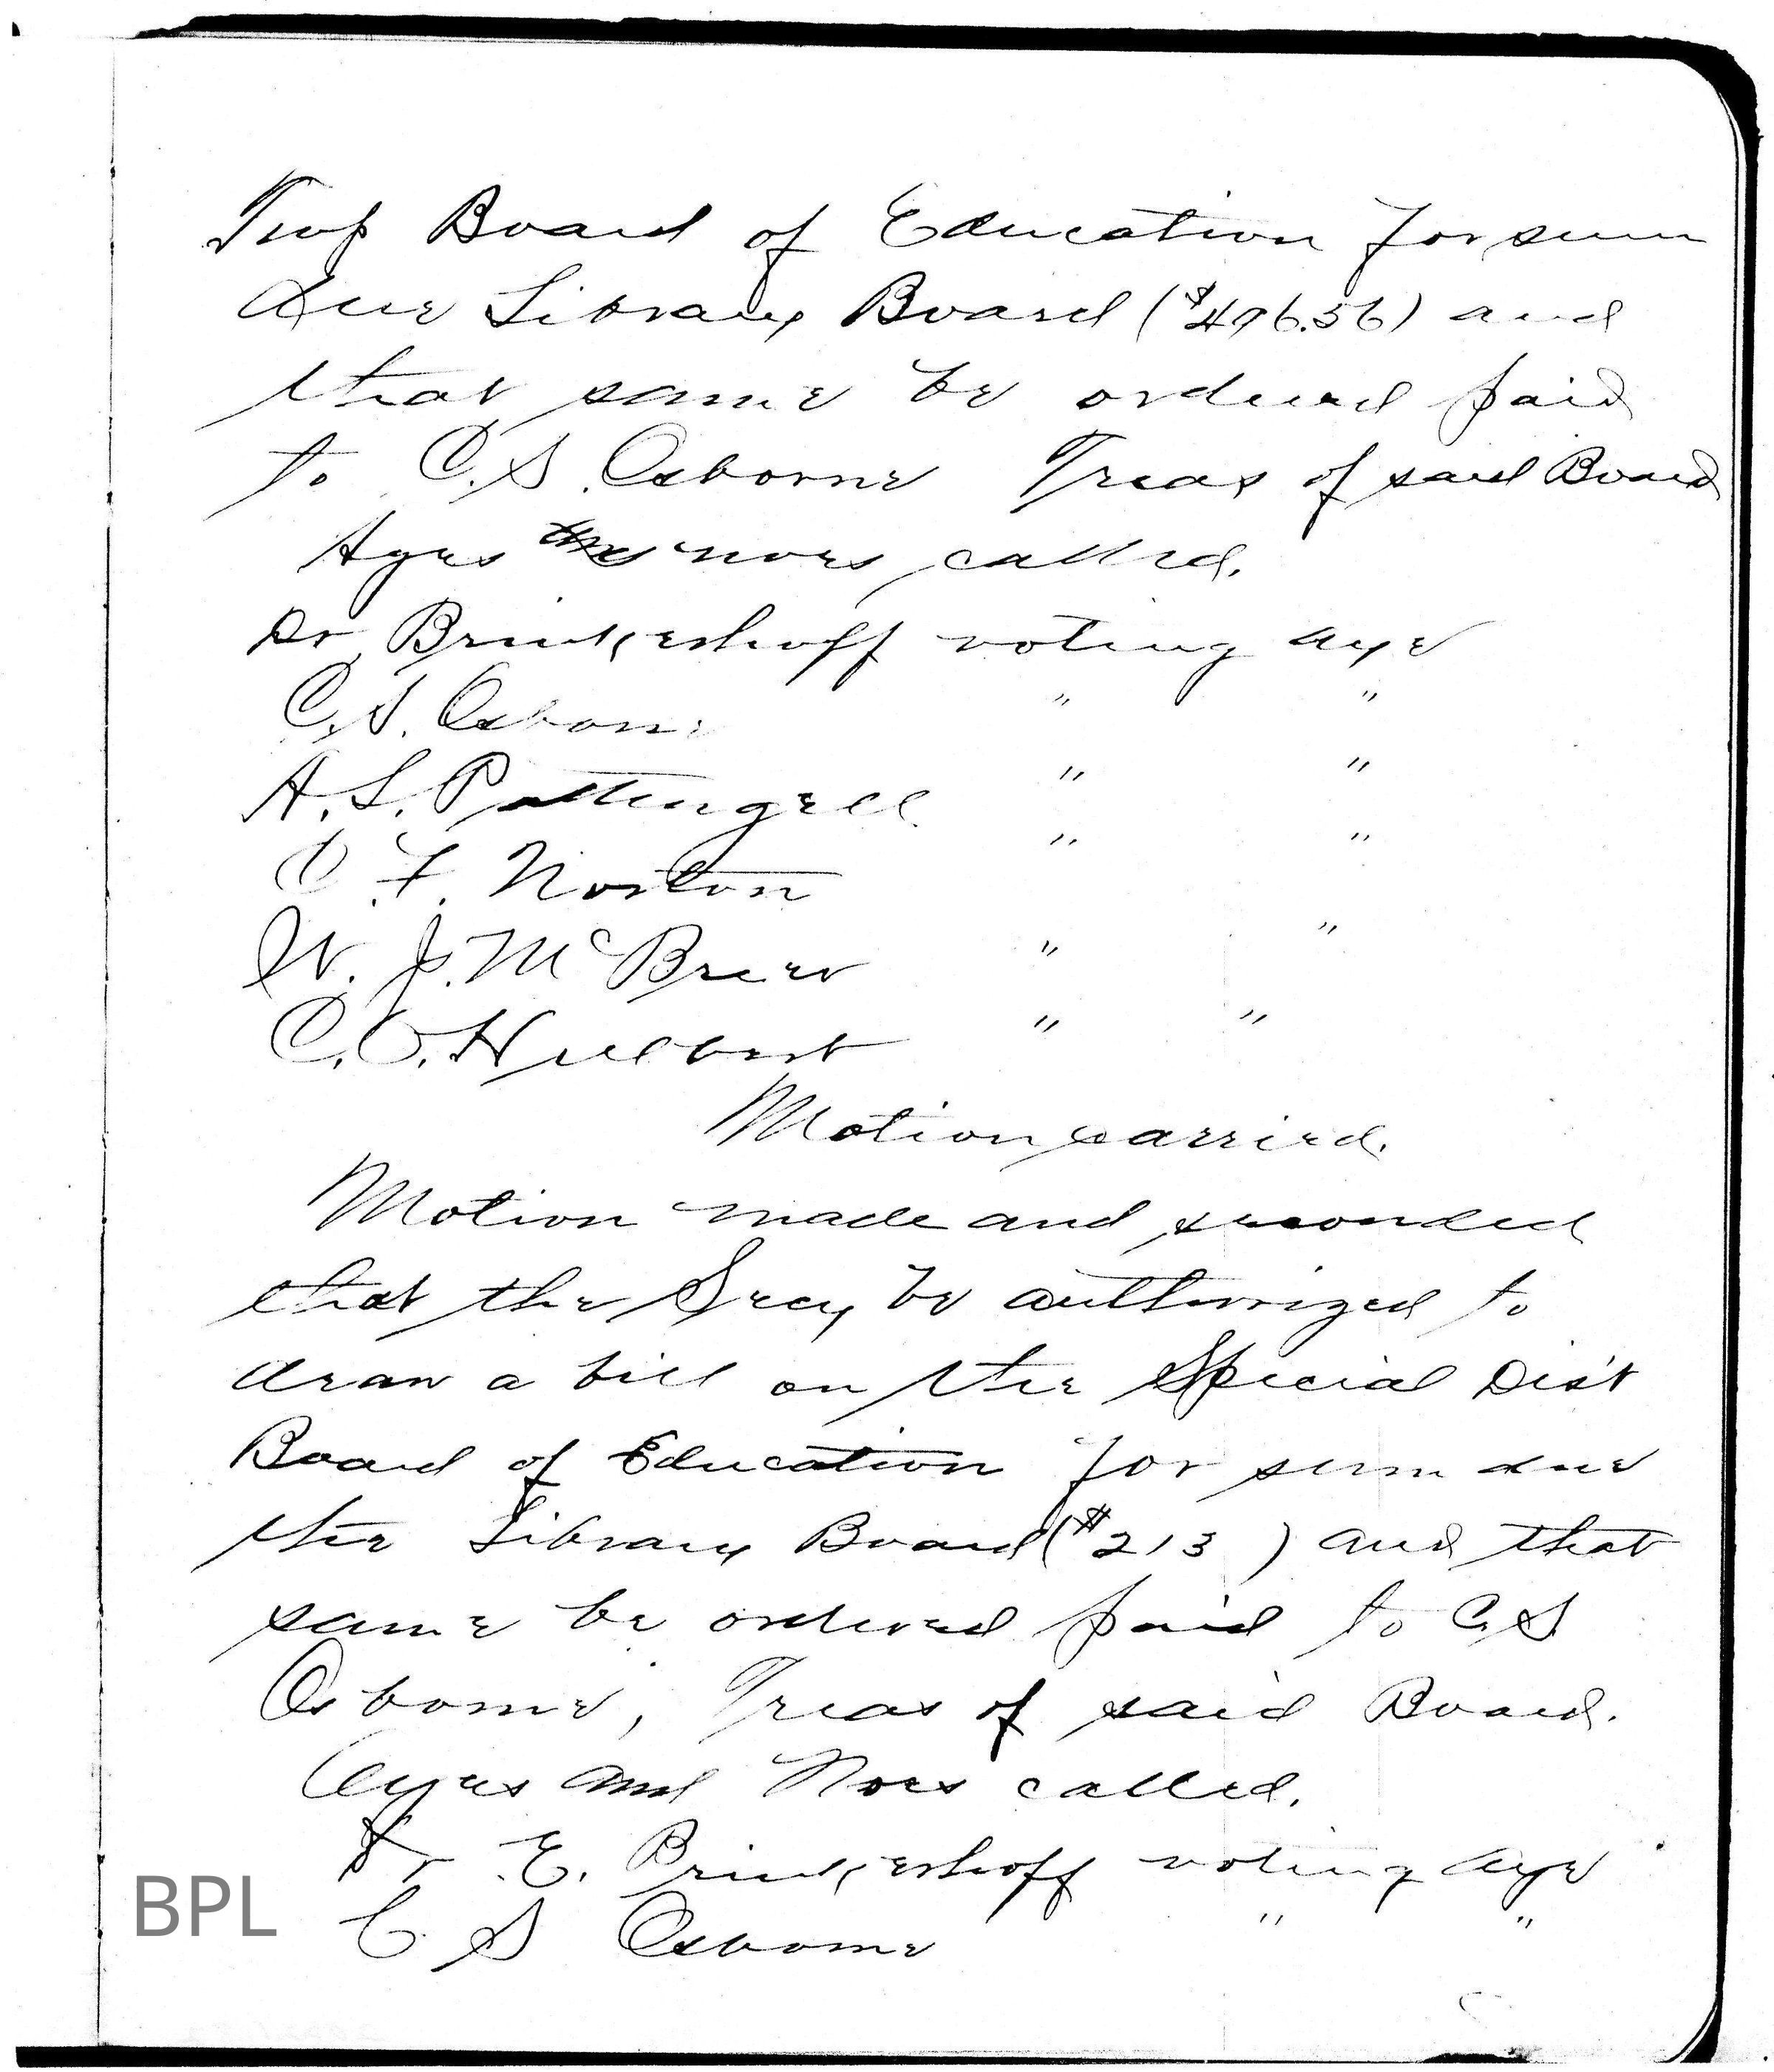 Twp Board of Education for sum
due Library Board ($496.56) and
that same be ordered paid
to C.S. Osborne Treas of said Board
Ayes noes called.
Dr Brinkerhoff voting aye
C.S. Osborne " "
A.S. Pettengill " "
C.F. Norton " "
W.J. McBrier " "
C.O. Hulbert " "
Motion carried.
Motion made and seconded
that the Secy be authorized to
draw a bill on the Special Dist
Board of Education for sum due
the Library Board ($213 ) and that
same be ordered paid to C.S.
Osborne, Treas of said Board.
Ayes and Noes called.
Dr E. Brinkerhoff voting aye
C S Osborne " "
BPL